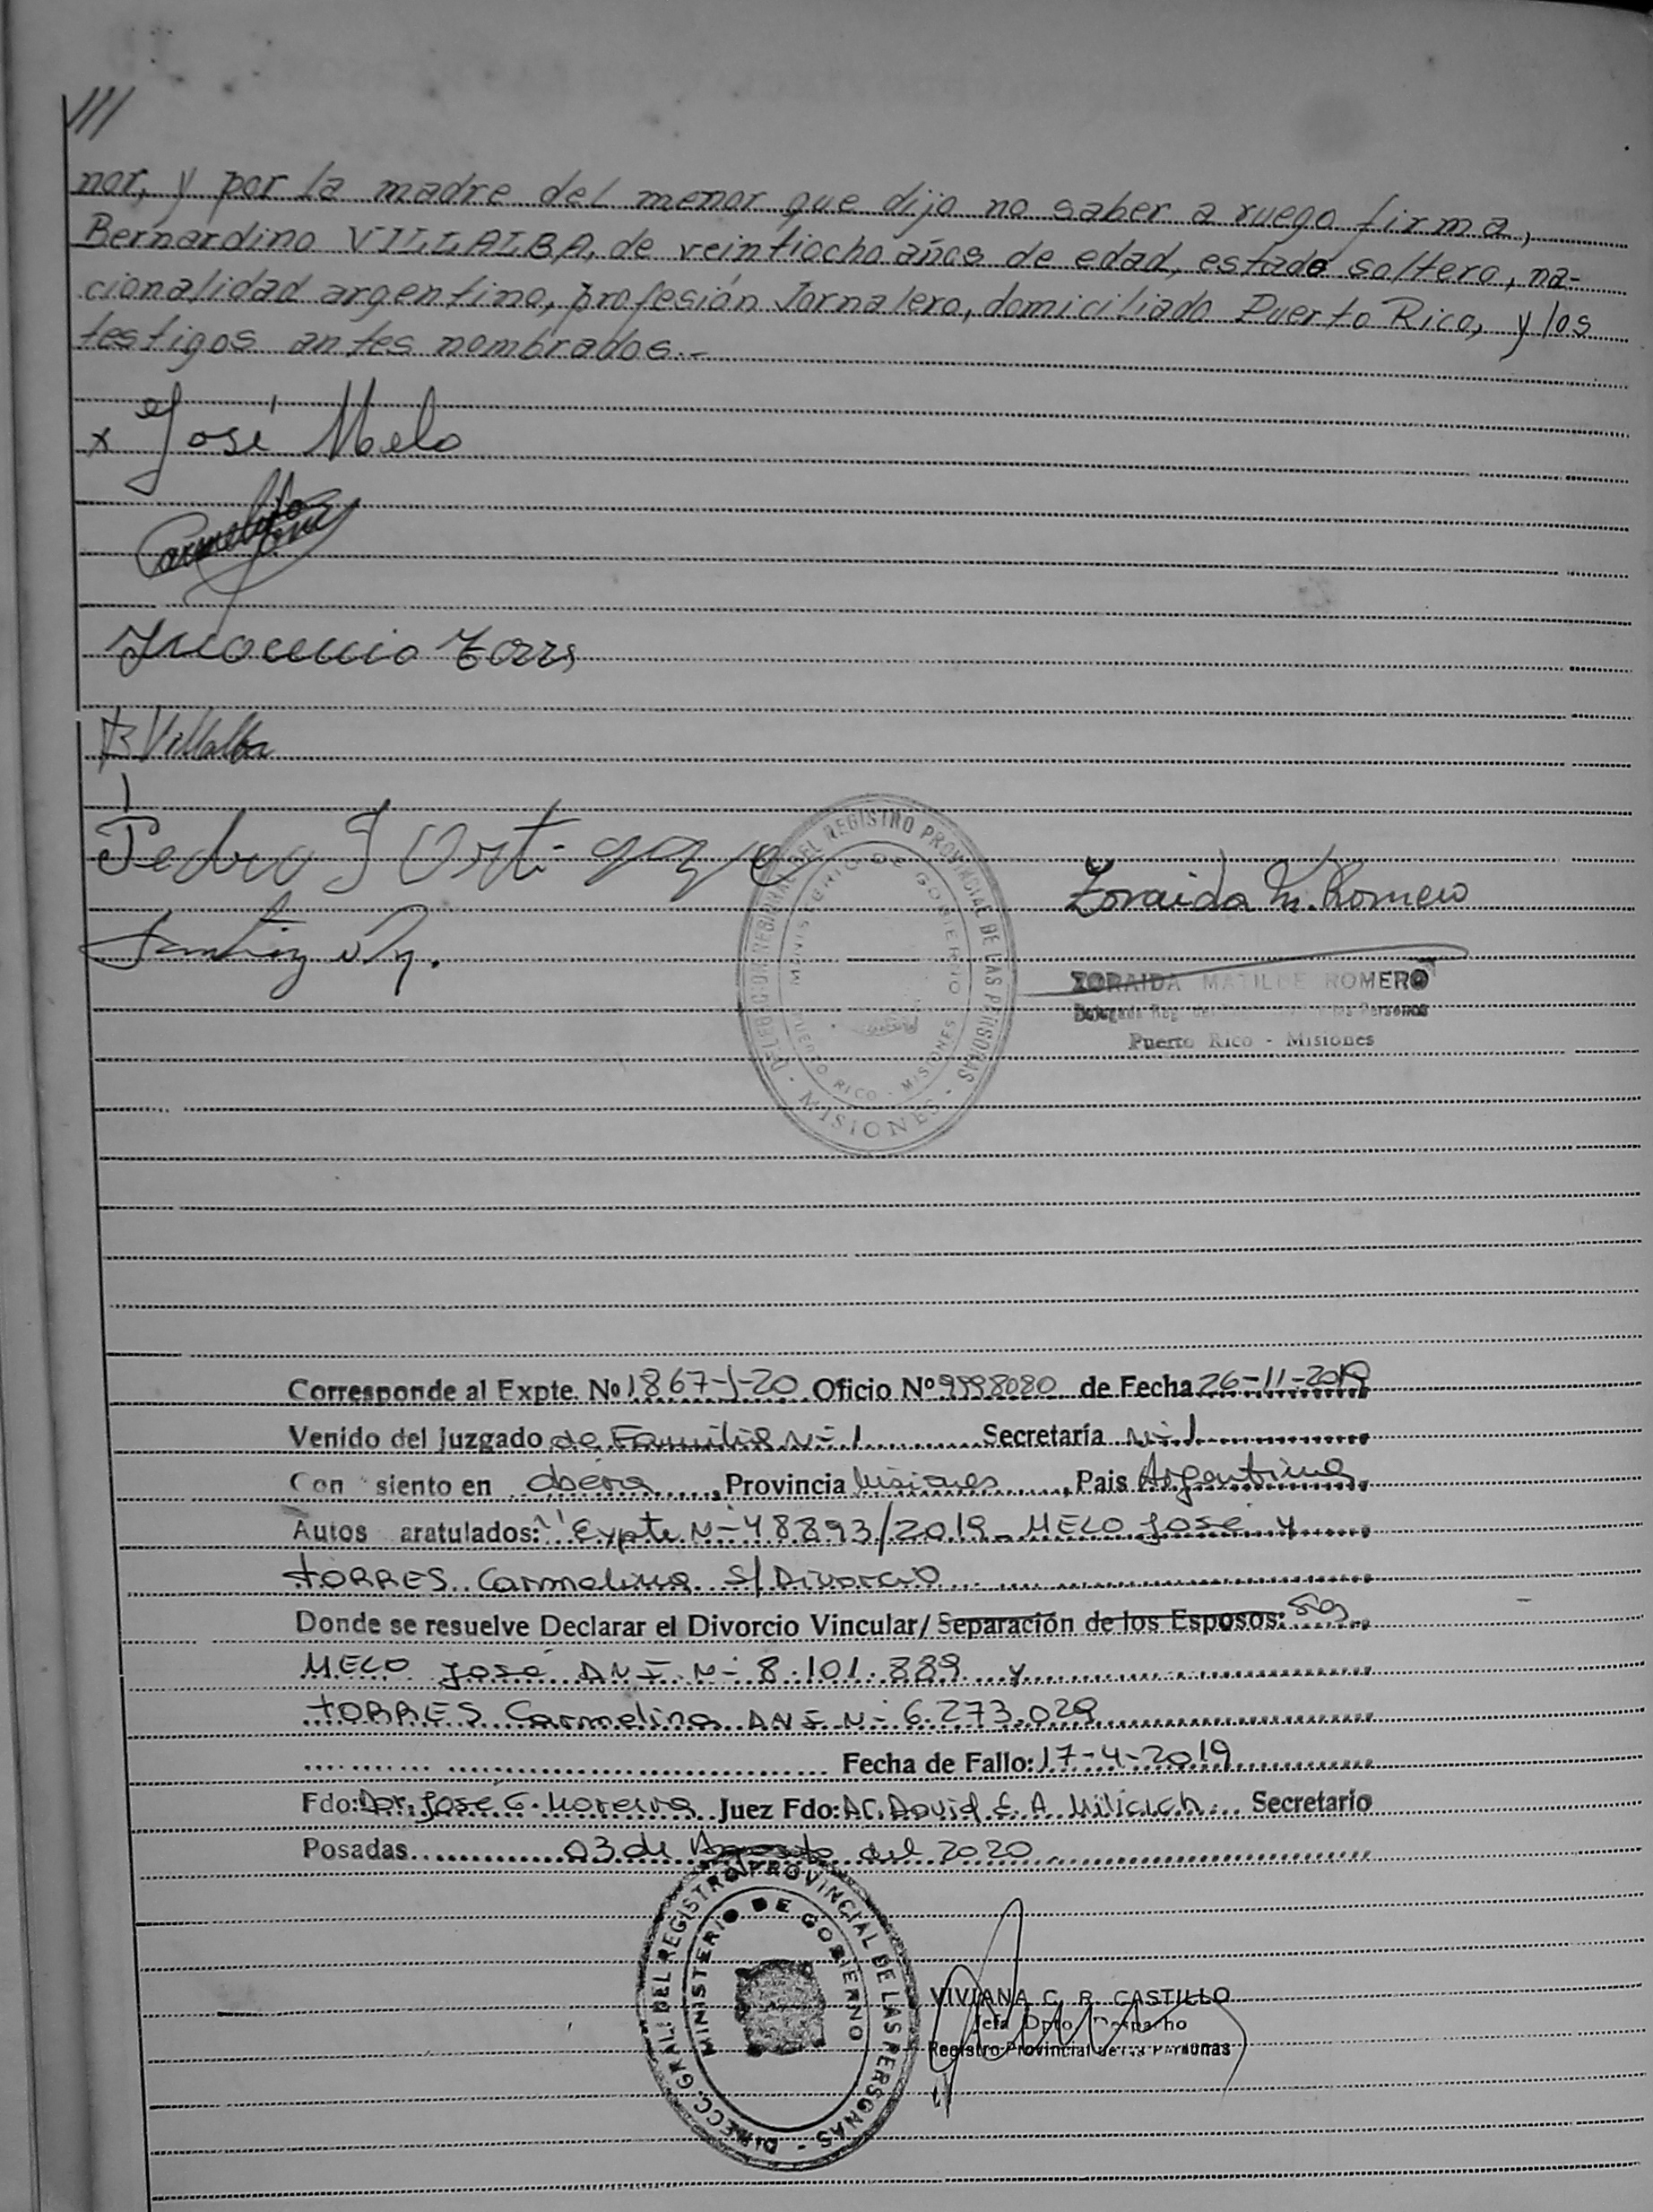 ///
nor, y por la madre del menor que dijo no saber a ruego firma,
Bernardino VILLALBA, de veintiocho años de edad, estado soltero, na-
cionalidad argentino, profesión Jornalero, domiciliado Puerto Rico, y los
testigos antes nombrados.-
x José Melo
Inocencio Torrs
B Villalba
Pedro J Ortigoza
Zoraida M. Romero
DELEGACION REGIONAL DEL REGISTRO PROVINCIAL DE LAS PERSONAS - MISIONES -
MINISTERIO DE GOBIERNO
PUERTO RICO - MISIONES
ZORAIDA MATILDE ROMERO
Delegada Reg. de las Personas
Puerto Rico - Misiones
Corresponde al Expte. Nº 1867-J-20 Oficio Nº 9998080 de Fecha 26-11-2019
Venido del Juzgado de Familia Nº 1 Secretaría Nº 1
Con siento en Oberá, Provincia Misiones, Pais Argentina
Autos aratulados: "Expte Nº 48893/2019 MELO José y
TORRES Carmelina S/ Divorcio
Donde se resuelve Declarar el Divorcio Vincular/ Separación de los Esposos:
MELO José DNI Nº 8.101.889 y
TORRES Carmelina DNI Nº 6.273.029
Fecha de Fallo: 17-4-2019
Fdo: Dr. José G. Moreira Juez Fdo: Dr. David E. A. Milicich Secretario
Posadas 03 de Agosto del 2020
DIRECC. GRAL. DEL REGISTRO PROVINCIAL DE LAS PERSONAS -
MINISTERIO DE GOBIERNO
VIVIANA C. R. CASTILLO
Jefa Dpto. Despacho
Registro Provincial de las Personas